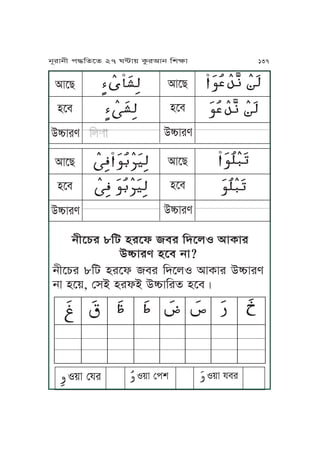 নূরানী পদ্ধতিতে ২৭ ঘন্টায় কুরআন শিক্ষা ১৩৭
আছে لِشَاْىْءٍ আছে لَنْ نَّدْعُوَاْ
হবে لِشَىْءٍ হবে لَنْ نَّدْعُوَ
উচ্চারণ উচ্চারণ
আছে لِيَرْبُوَاْ فِىْ আছে تَبْلُوَاْ
হবে لِيَرْبُوَ فِىْ হবে تَبْلُوَ
উচ্চারণ উচ্চারণ
নীচের ৮টি হরফে জবর দিলেও আকার
উচ্চারণ হবে না?
নীচের ৮টি হরফে জবর দিলেও আকার উচ্চারণ
না হয়ে, সেই হরফই উচ্চারিত হবে।
خَ رَ صَ ضَ طَ ظَ قَ غَ
وِ ওয়া যের وُ ওয়া পেশ وَ ওয়া যবর